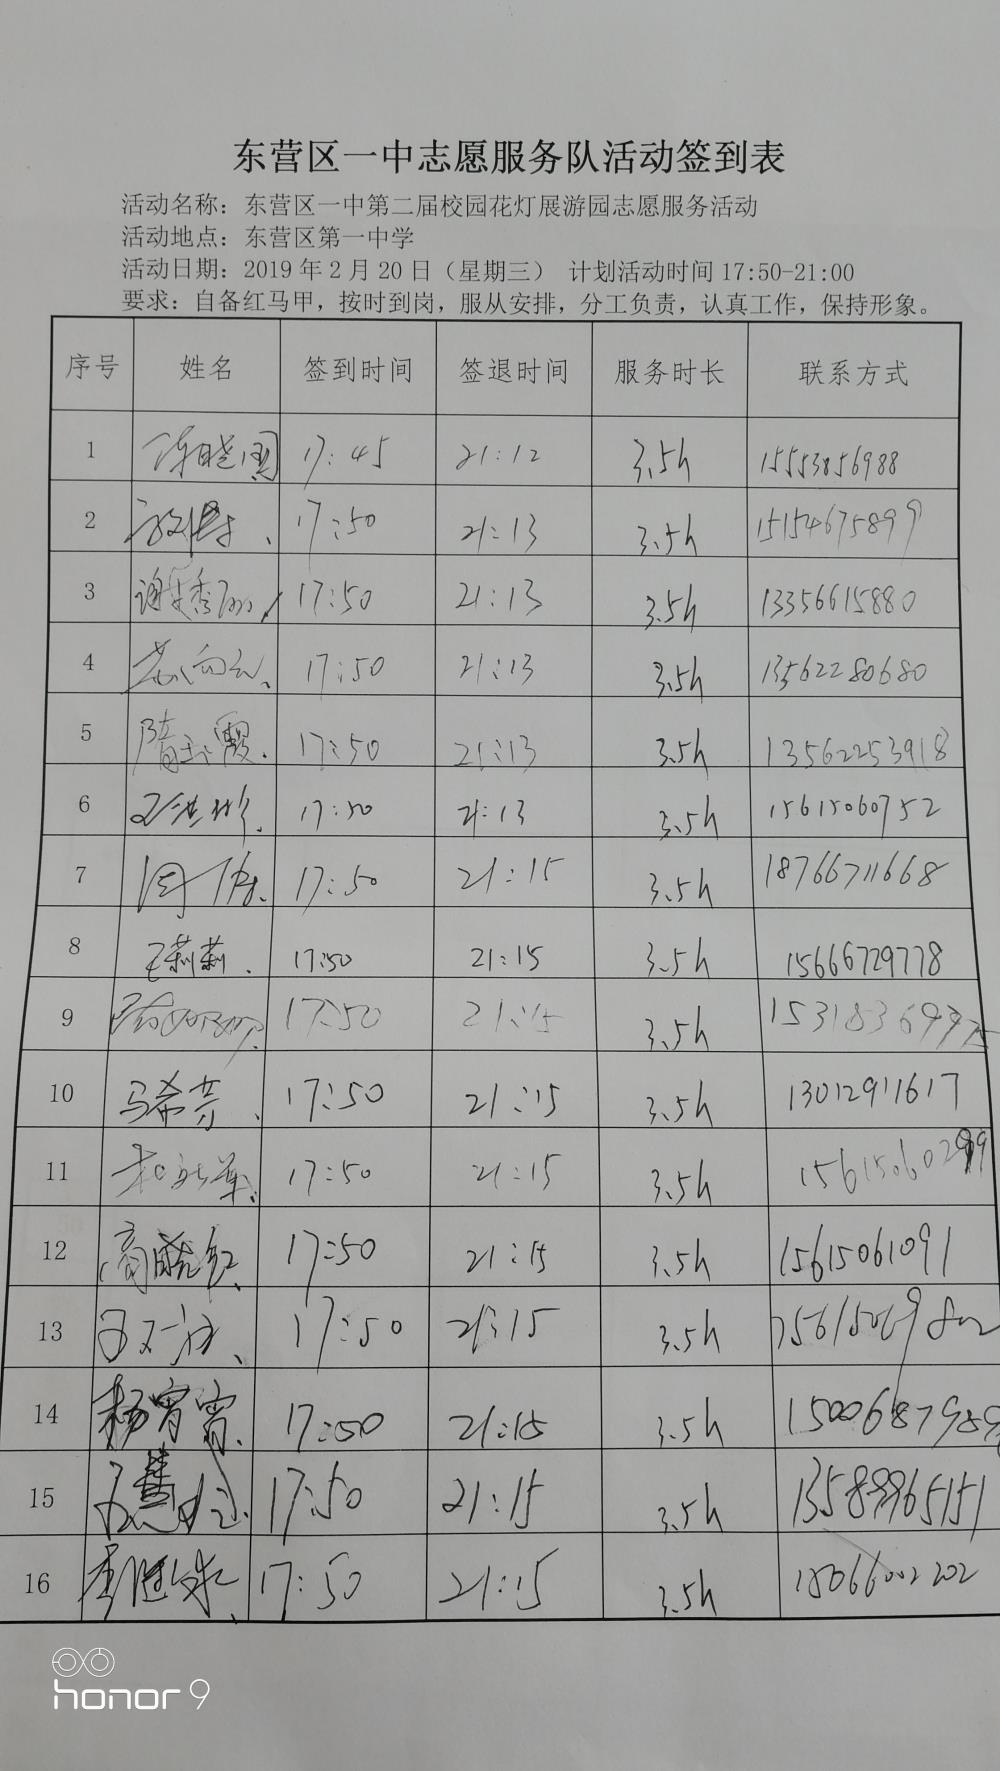 东营区一中志愿服务队活动签到表
活动名称：东营区一中第二届校园花灯展游园志愿服务活动
活动地点：东营区第一中学
活动日期：2019年2月20日（星期三） 计划活动时间17:50-21:00
要求：自备红马甲，按时到岗，服从安排，分工负责，认真工作，保持形象。
序号 姓名 签到时间 签退时间 服务时长 联系方式
1 17:45 21:12 3.5h 15553856988
2 17:50 21:13 3.5h 15154675899
3 17:50 21:13 3.5h 13356615880
4 17:50 21:13 3.5h 13562280680
5 隋玉霞. 17:50 21:13 3.5h 13562253918
6 17:50 21:13 3.5h 15615060752
7 17:50 21:15 3.5h 18766711668
8 王莉莉. 17:50 21:15 3.5h 15666729778
9 17:50 21:15 3.5h
10 马希芳、 17:50 21:15 3.5h 13012911617
11 17:50 21:15 3.5h
12 17:50 21:15 3.5h 15615061091
13 17:50 21:15 3.5h
14 杨宵宵. 17:50 21:15 3.5h
15 17:50 21:15 3.5h
16 17:50 21:15 3.5h
honor 9